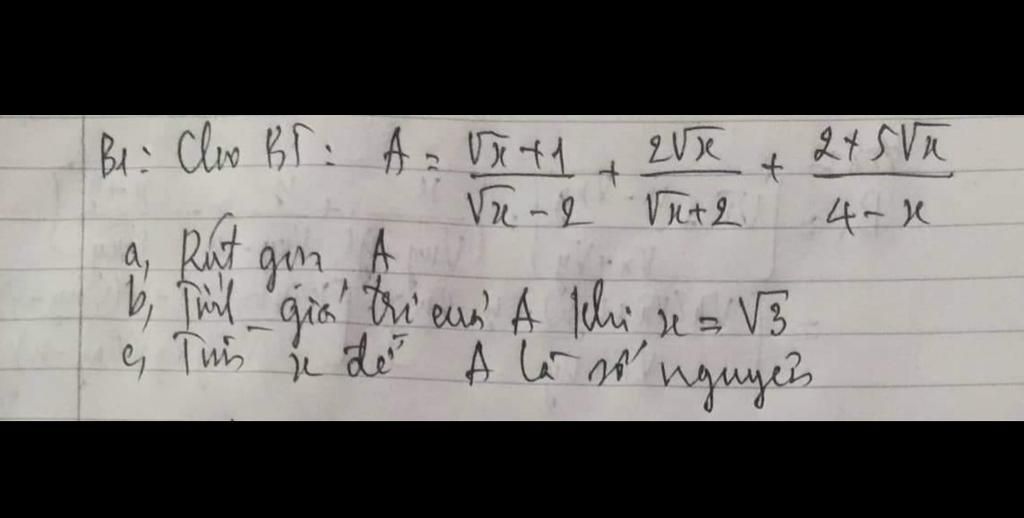 B1: Cho BT: A = √x+1/√x-2 + 2√x/√x+2 + 2+5√x/4-x
a, Rút gọn A
b, Tính giá trị của A khi x = √3
c, Tìm x để A là số nguyên